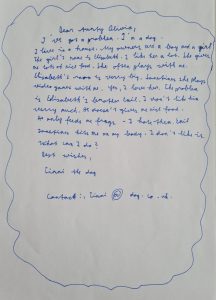 Dear Aunty Elvira,
I've got a problem. I'm a dog.
I live in a house. My owners are a boy and a girl.
The girl's name is Elisabeth. I like her a lot. She gives
me lots of nice food. She often plays with me.
Elisabeth's room is very big. Sometimes she plays
video games with me. Yes, I love her. The problem
is Elisabeth's brother Carl. I don't like him
very much. He doesn't give me nice food.
He only feeds me frogs - I hate them. Carl
sometimes hits me on my body. I don't like it.
What can I do?
Best wishes,
the dog
Contact: @ dog. co. uk.